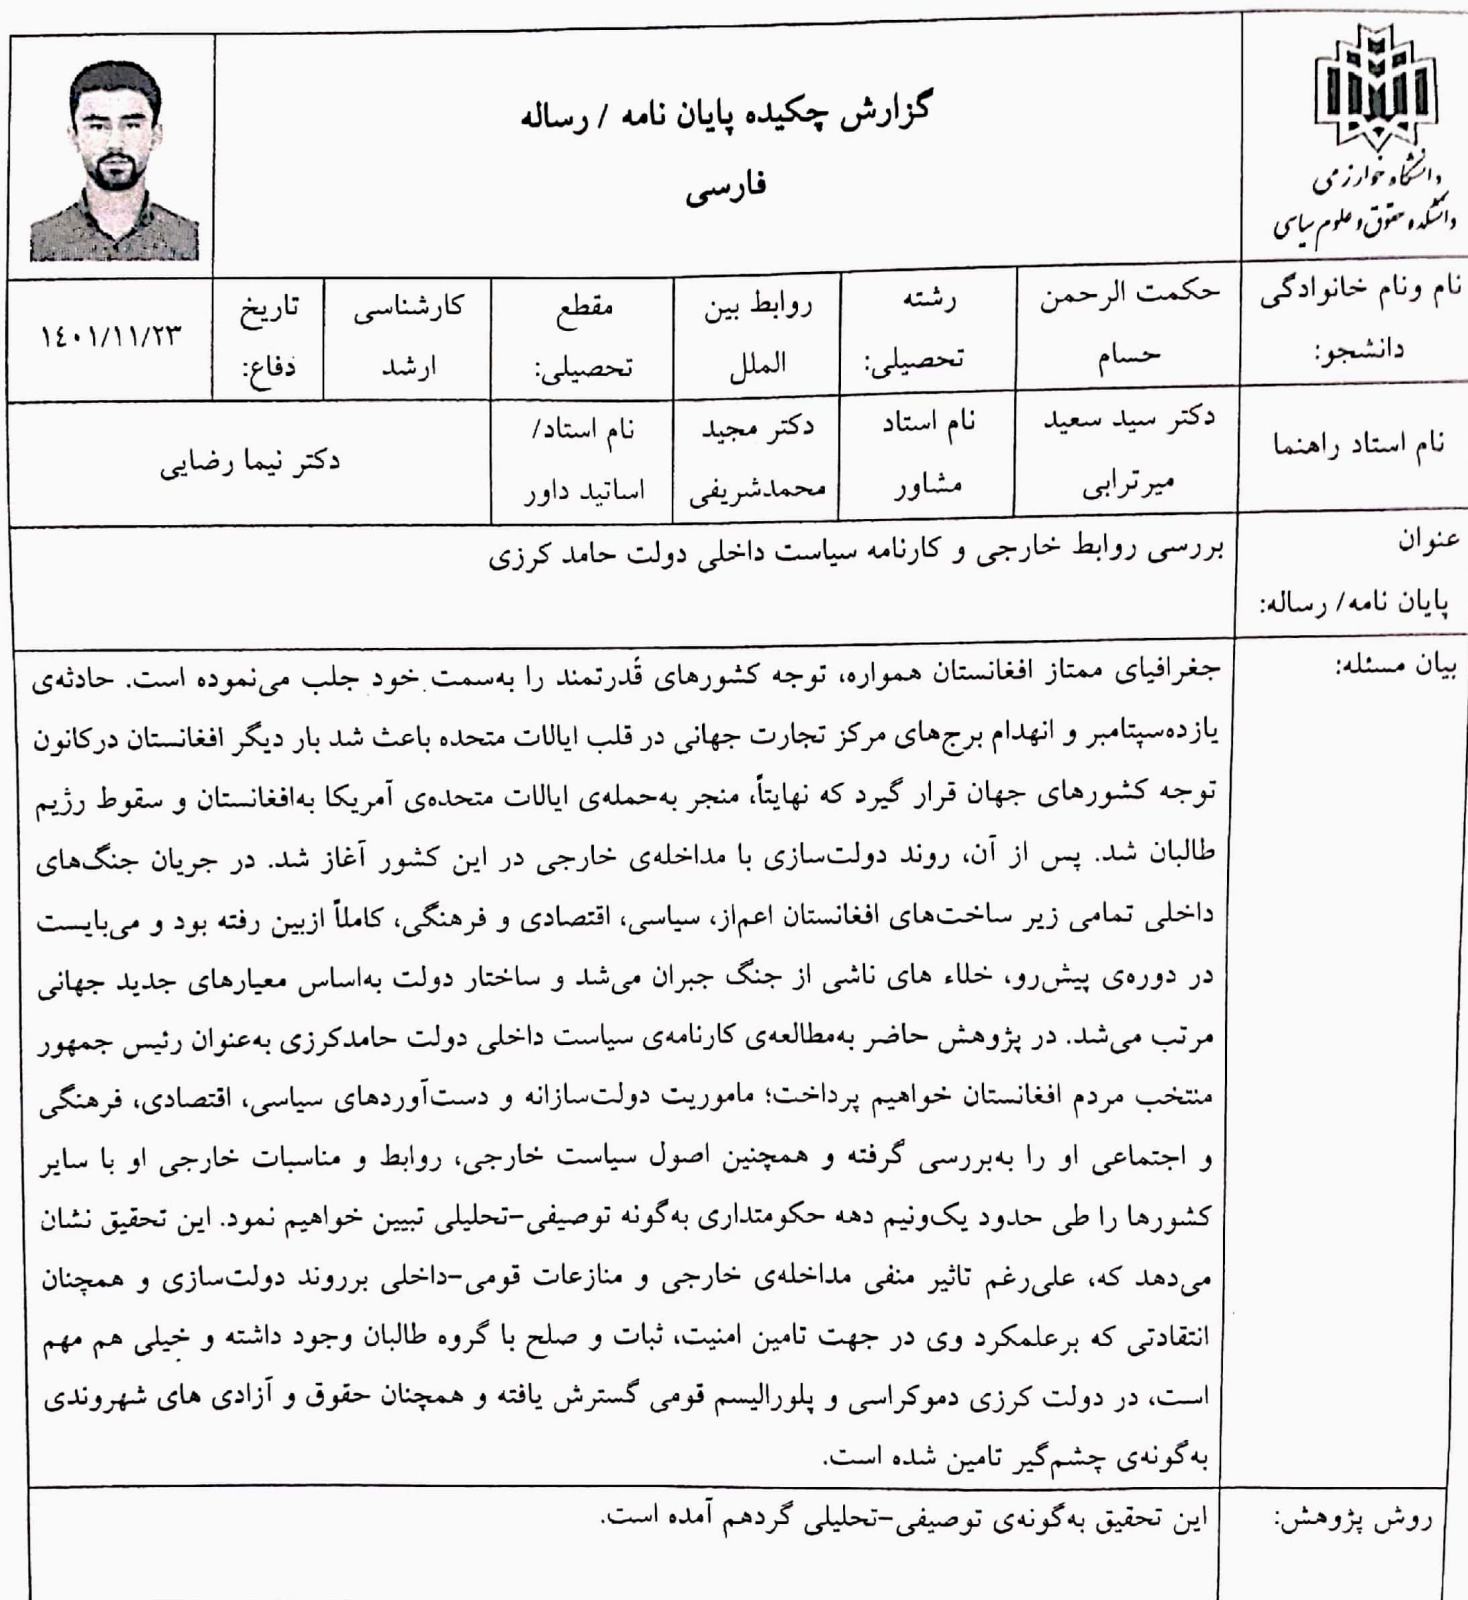 گزارش چکیده پایان نامه / رساله
فارسی
دانشگاه خوارزمی
دانشکده حقوق و علوم سیاسی
نام ونام خانوادگی
دانشجو:
حکمت الرحمن
حسام
رشته
تحصیلی:
روابط بین
الملل
مقطع
تحصیلی:
کارشناسی
ارشد
تاریخ
دفاع:
۱٤۰۱/۱۱/۲۳
نام استاد راهنما
دکتر سید سعید
میرترابی
نام استاد
مشاور
دکتر مجید
محمدشریفی
نام استاد/
اساتید داور
دکتر نیما رضایی
عنوان
پایان نامه/ رساله:
بررسی روابط خارجی و کارنامه سیاست داخلی دولت حامد کرزی
بیان مسئله:
جغرافیای ممتاز افغانستان همواره، توجه کشورهای قدرتمند را به‌سمت خود جلب می‌نموده است. حادثه‌ی
یازده‌سپتامبر و انهدام برج‌های مرکز تجارت جهانی در قلب ایالات متحده باعث شد بار دیگر افغانستان درکانون
توجه کشورهای جهان قرار گیرد که نهایتاً، منجر به‌حمله‌ی ایالات متحده‌ی آمریکا به‌افغانستان و سقوط رژیم
طالبان شد. پس از آن، روند دولت‌سازی با مداخله‌ی خارجی در این کشور آغاز شد. در جریان جنگ‌های
داخلی تمامی زیر ساخت‌های افغانستان اعم‌از، سیاسی، اقتصادی و فرهنگی، کاملاً ازبین رفته بود و می‌بایست
در دوره‌ی پیش‌رو، خلاء های ناشی از جنگ جبران می‌شد و ساختار دولت به‌اساس معیارهای جدید جهانی
مرتب می‌شد. در پژوهش حاضر به‌مطالعه‌ی کارنامه‌ی سیاست داخلی دولت حامدکرزی به‌عنوان رئیس جمهور
منتخب مردم افغانستان خواهیم پرداخت؛ ماموریت دولت‌سازانه و دست‌آوردهای سیاسی، اقتصادی، فرهنگی
و اجتماعی او را به‌بررسی گرفته و همچنین اصول سیاست خارجی، روابط و مناسبات خارجی او با سایر
کشورها را طی حدود یک‌ونیم دهه حکومتداری به‌گونه توصیفی-تحلیلی تبیین خواهیم نمود. این تحقیق نشان
می‌دهد که، علی‌رغم تاثیر منفی مداخله‌ی خارجی و منازعات قومی-داخلی برروند دولت‌سازی و همچنان
انتقادتی که برعلمکرد وی در جهت تامین امنیت، ثبات و صلح با گروه طالبان وجود داشته و خیلی هم مهم
است، در دولت کرزی دموکراسی و پلورالیسم قومی گسترش یافته و همچنان حقوق و آزادی های شهروندی
به‌گونه‌ی چشم‌گیر تامین شده است.
روش پژوهش:
این تحقیق به‌گونه‌ی توصیفی-تحلیلی گردهم آمده است.